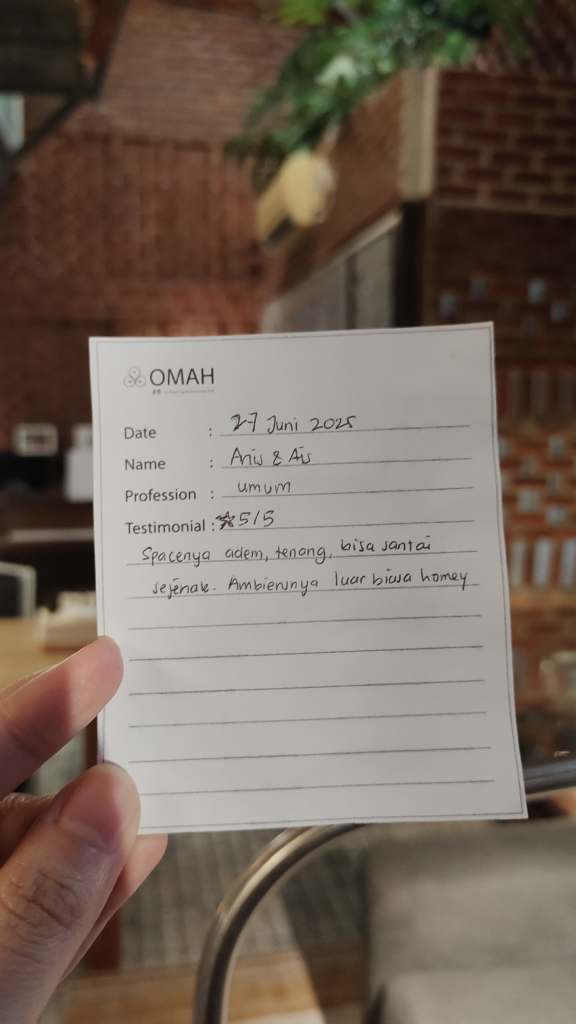 OMAH
Date : 27 Juni 2025
Name : Aris & Ais
Profession : umum
Testimonial : ★5/5
Spacenya adem, tenang, bisa santai
sejenak. Ambiensnya luar biasa homey